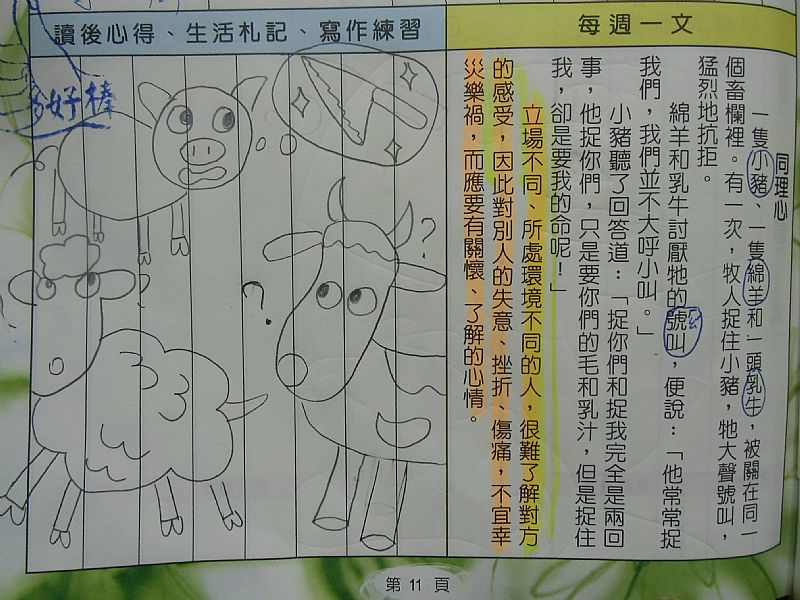 每週一文
同理心
一隻小豬、一隻綿羊和一頭乳牛，被關在同一
個畜欄裡。有一次，牧人捉住小豬，牠大聲號叫，
猛烈地抗拒。
綿羊和乳牛討厭牠的號叫，便說：「他常常捉
我們，我們並不大呼小叫。」
小豬聽了回答道：「捉你們和捉我完全是兩回
事，他捉你們，只是要你們的毛和乳汁，但是捉住
我，卻是要我的命呢！」
立場不同、所處環境不同的人，很難了解對方
的感受，因此對別人的失意、挫折、傷痛，不宜幸
災樂禍，而應要有關懷、了解的心情。
讀後心得、生活札記、寫作練習
好棒
?
?
第 11 頁